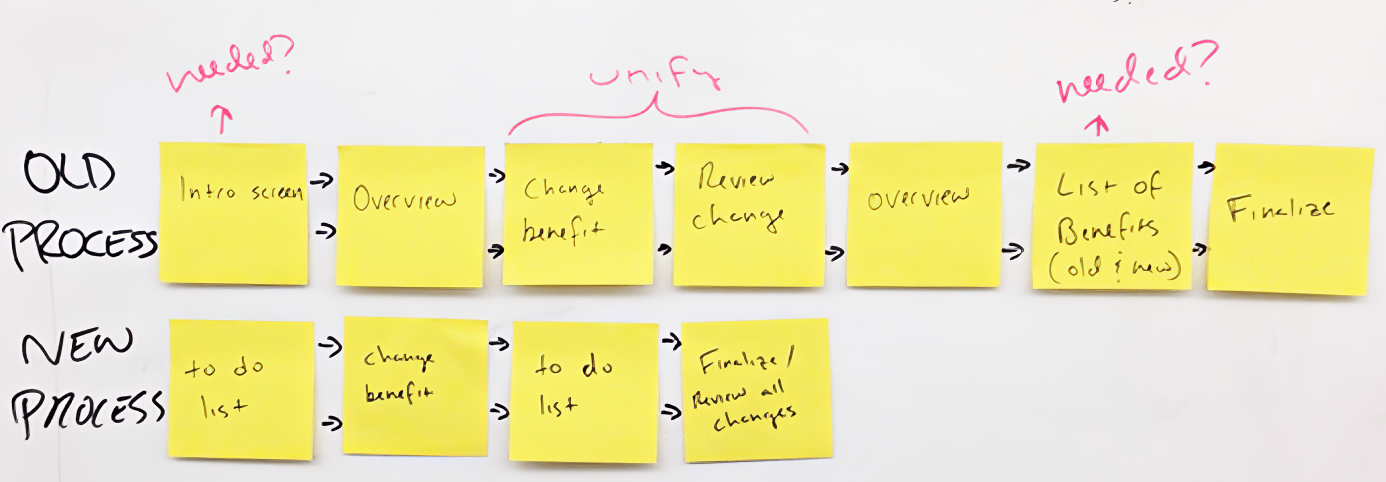 needed?
unify
needed?
OLD
PROCESS
Intro screen
Overview
Change
benefit
Review
change
overview
List of
Benefits
(old & new)
Finalize
NEW
PROCESS
to do
list
change
benefit
to do
list
Finalize/
Review all
changes